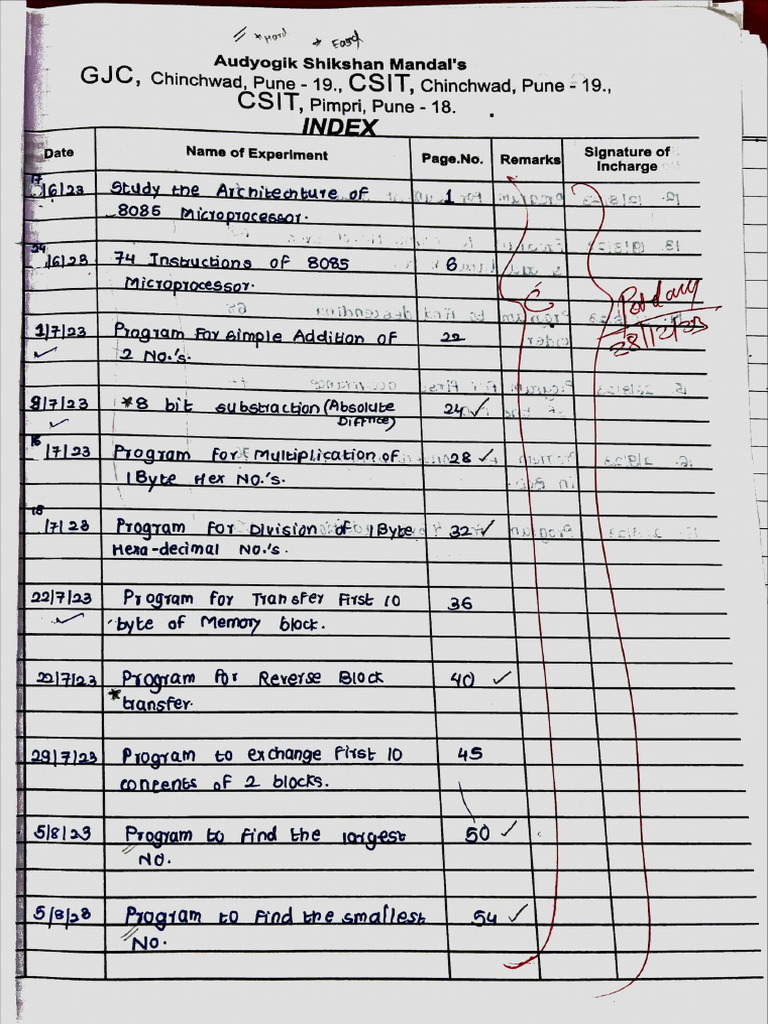 * Hard * Easy
Audyogik Shikshan Mandal's
GJC, Chinchwad, Pune - 19., CSIT, Chinchwad, Pune - 19.,
CSIT, Pimpri, Pune - 18.
INDEX
Date Name of Experiment Page.No. Remarks Signature of Incharge
17/6/23 Study the Architechture of 1
8085 Microprocessor.
24/6/23 74 Instructions of 8085 6
Microprocessor.
1/7/23 Program For Simple Addition of 22
2 No.'s.
8/7/23 *8 bit substraction (Absolute 24
Diffrnce)
/7/23 Program for Multiplication of 28
1 Byte Hex No.'s.
/7/23 Program For Division of 1 Byte 32
Hexa-decimal No.'s.
22/7/23 Program for Transfer First 10 36
byte of Memory block.
22/7/23 Program for Reverse Block 40
* transfer.
29/7/23 Program to exchange First 10 45
contents of 2 blocks.
5/8/23 Program to Find the largest 50
No.
5/8/23 Program to Find the smallest 54
No.
28/12/23